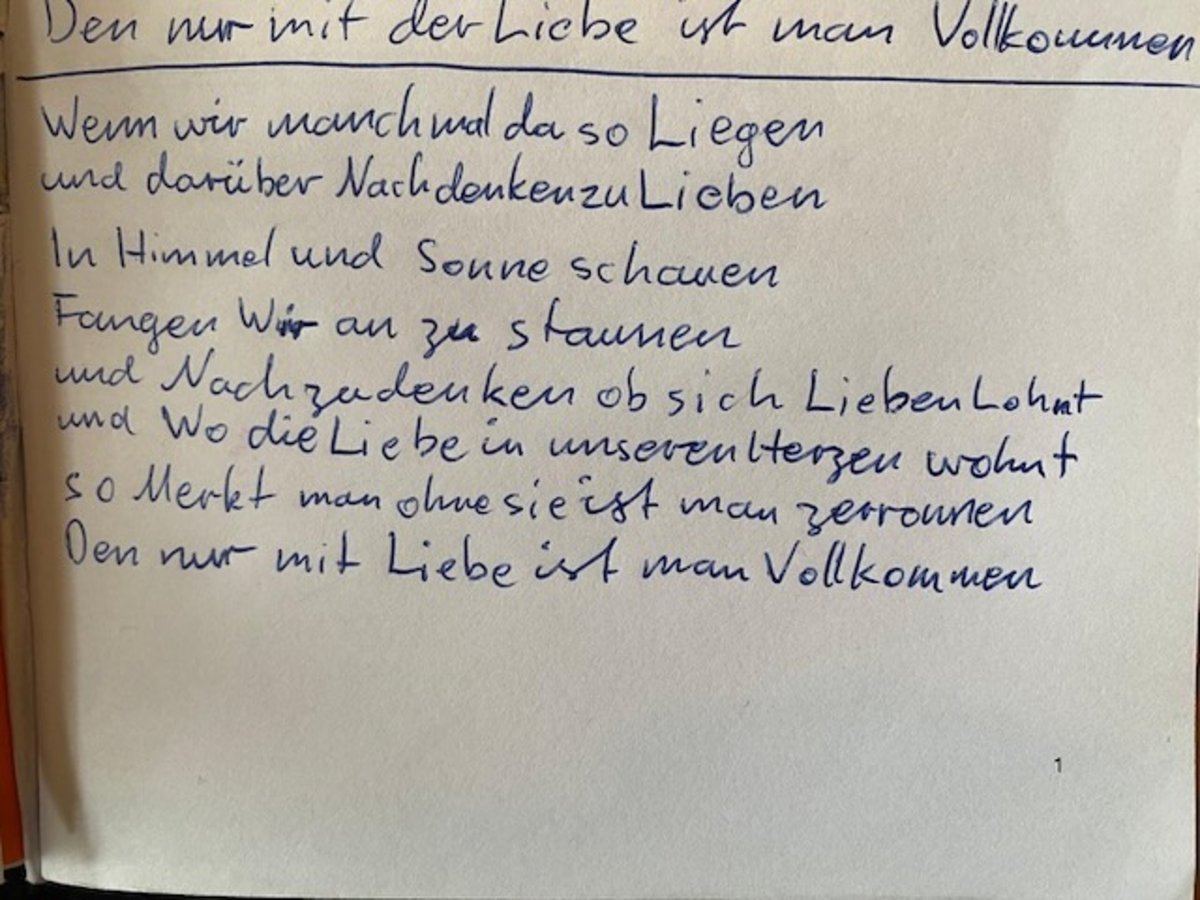 Den nur mit der Liebe ist man Vollkommen
Wenn wir manchmal da so Liegen
und darüber Nachdenken zu Lieben
In Himmel und Sonne schauen
Fangen Wir an zu staunen
und Nachzudenken ob sich Lieben Lohnt
und Wo die Liebe in unseren Herzen wohnt
so Merkt man ohne sie ist man zerronnen
Den nur mit Liebe ist man Vollkommen
1